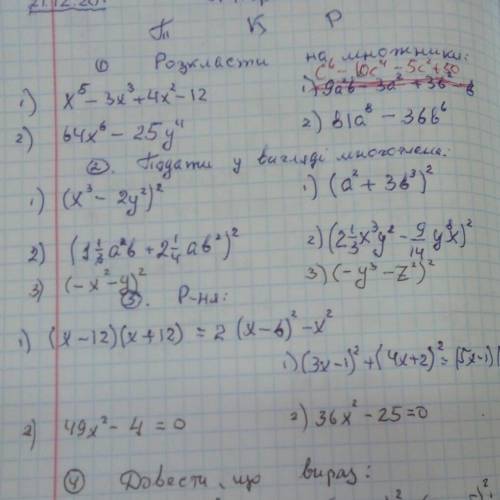 21.12.20
П К Р
① Розкласти на множники:
c⁶ − 10c⁴ − 5c² + 50
1) x⁵ − 3x³ + 4x² − 12
2) 64x⁶ − 25y⁴ 2) 81a⁸ − 36b⁶
②. Подати у вигляді многочлена:
1) (x³ − 2y²)² 1) (a² + 3b³)²
2) (1 1/3 a²b + 2 1/4 ab²)² 2) (2 1/3 x³y² − 9/14 y⁸x)²
3) (−x² − y)² 3) (−y³ − z²)²
③. Р-ня:
1) (x − 12)(x + 12) = 2 (x − 6)² − x²
1) (3x − 1)² + (4x + 2)² = (5x − 1)(
2) 49x² − 4 = 0 2) 36x² − 25 = 0
④ Довести, що вираз: